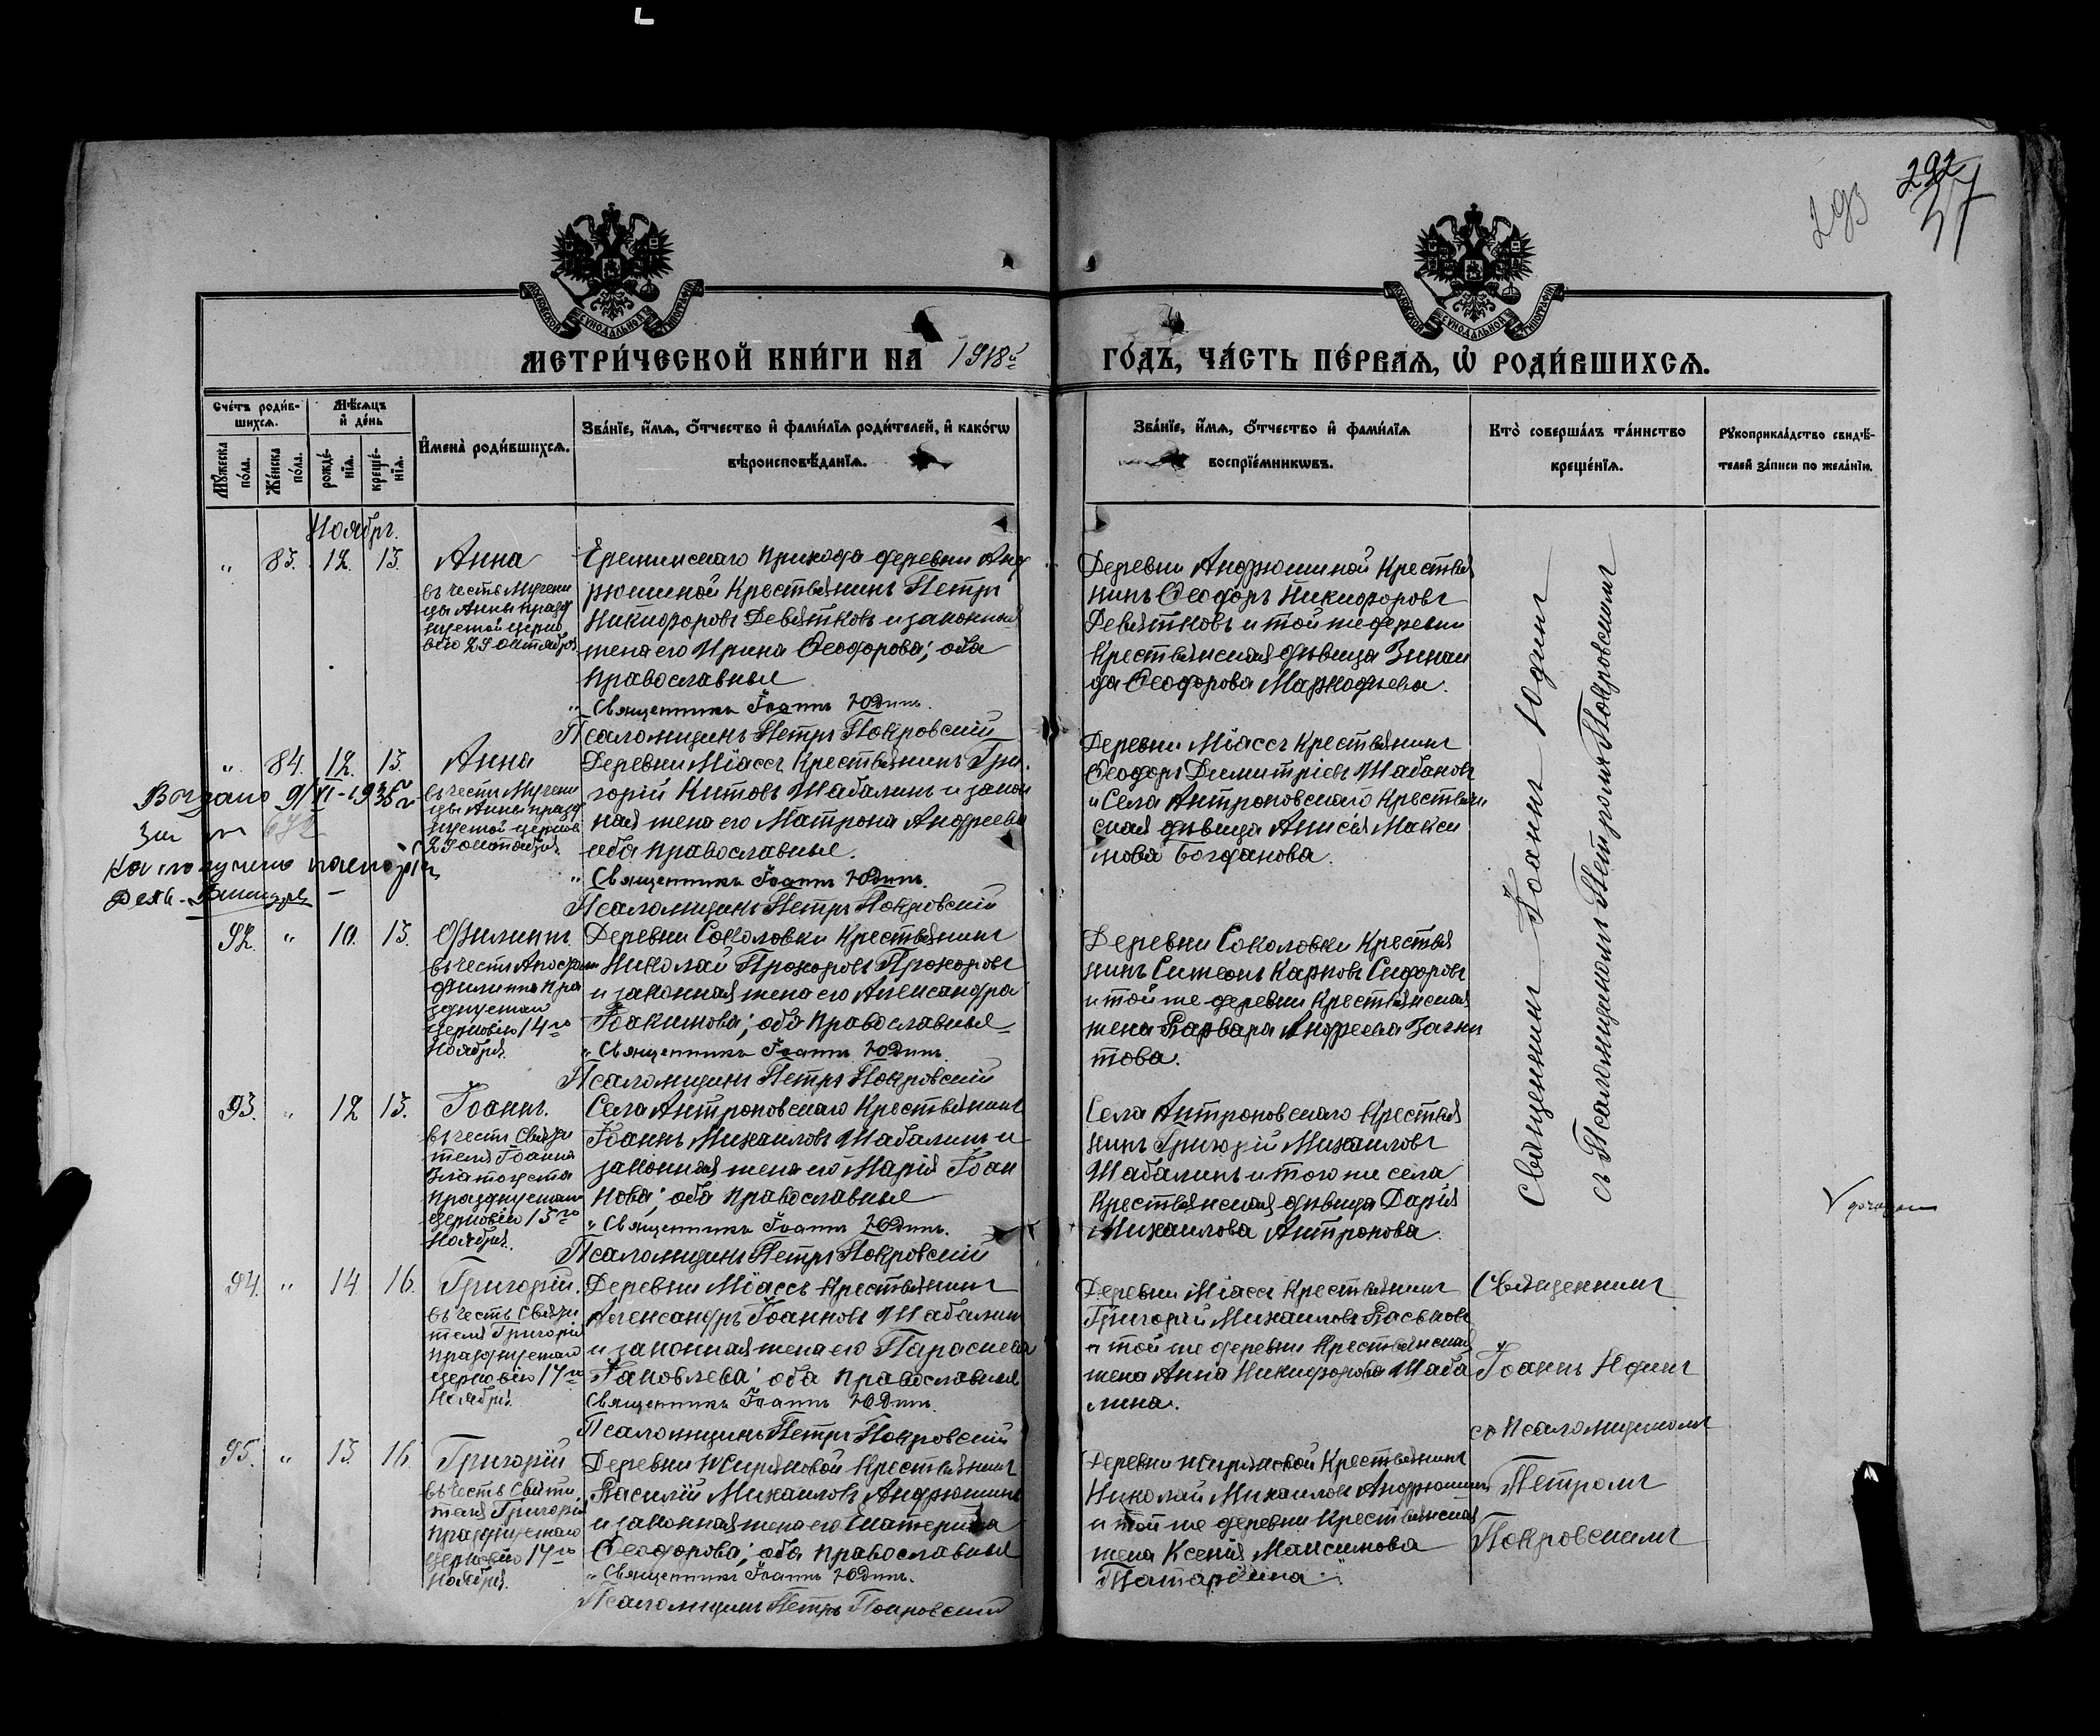 292
57
293
МОСКОВСКОЙ СѴНОДАЛЬНОЙ ТИПОГРАФІИ
МОСКОВСКОЙ СѴНОДАЛЬНОЙ ТИПОГРАФІИ
МЕТРИ́ЧЕСКОЙ КНИ́ГИ НА 1918й
ГО́ДЪ, ЧА́СТЬ ПЕ́РВАѦ, Ѡ҆ РОДИ́ВШИХСѦ.
Сче́тъ роди́в-
шихсѧ.
Мꙋ́жеска по́ла.
Же́нска по́ла.
Мѣ́сѧцъ
и҆ де́нь
рожде́-
нїѧ.
креще́-
нїѧ.
И҆мена̀ роди́вшихсѧ.
Зва́нїе, и҆́мѧ, ѻ҆́тчество и҆ фами́лїѧ роди́телей, и҆ како́гѡ
вѣроисповѣ́данїѧ.
Зва́нїе, и҆́мѧ, ѻ҆́тчество и҆ фами́лїѧ
воспрїе́мникѡвъ.
Кто̀ соверша́лъ та́инство
креще́нїѧ.
Рꙋкоприкла́дство свидѣ́-
телей за́писи по жела́нїю.
Ноябрь.
" 83. 12. 13. Анна
въ честь Мучени
цы Анны празд
нуемой церко
вію 29 Октября
Еремискаго прихода деревни Анд
рюшиной Крестьянинъ Петръ
Никифоровъ Девятковъ и законная
жена его Ирина Ѳеодорова; оба
православные
" Священникъ Іоаннъ Юдинъ.
Псаломщикъ Петръ Покровскій
Деревни Андрюшиной Крестья
нинъ Ѳеодоръ Никифоровъ
Девятковъ и той же деревни
Крестьянская дѣвица Зинаи
да Ѳеодорова Маркофьева.
" 84. 12. 13. Анна
въ честь Мучени
цы Анны празд
нуемой церков
29 октября.
Деревни Міассъ Крестьянинъ Гри
горій Китовъ Шабалинъ и закон
ная жена его Матрона Андреева
оба православные.
" Священникъ Іоаннъ Юдинъ.
Псаломщикъ Петръ Покровскій
Деревни Міассъ Крестьянинъ
Ѳеодоръ Димитріевъ Шабановъ
и Села Антроповскаго Крестьян
ская дѣвица Анисія Макси
мова Богданова.
на получение паспорта
92. " 10. 13. Филиппъ
въ честь Апостола
Филиппа пра
зднуемаго
церковію 14го
Ноября.
Деревни Соколовки Крестьянинъ
Николай Прохоровъ Прохоровъ
и законная жена его Александра
Іоакимова; оба православные
" Священникъ Іоаннъ Юдинъ.
Псаломщикъ Петръ Покровскій
Деревни Соколовки Крестья
нинъ Симеонъ Карповъ Сидоровъ
и той же деревни Крестьянская
жена Варвара Андреева
това.
93. " 12 13. Іоаннъ.
въ честь Святи
теля Іоанна
Златоуста
празднуемаго
церковію 13го
Ноября.
Села Антроповскаго Крестьянинъ
Іоаннъ Михаиловъ Шабалинъ и
законная жена его Марія Іоан
нова; оба православные
" Священникъ Іоаннъ Юдинъ.
Псаломщикъ Петръ Покровскій
Села Антроповскаго Крестья
нинъ Григорій Михаиловъ
Шабалинъ и того же села
Крестьянская дѣвица Дарія
Михаилова Антропова.
Священникъ Іоаннъ Юдинъ
съ Псаломщикомъ Петромъ Покровскимъ
94. " 14 16. Григорій.
въ честь Святи
теля Григорія
празднуемаго
церковію 17го
Ноября.
Деревни Міассъ Крестьянинъ
Александръ Іоанновъ Шабалинъ
и законная жена его Параскева
Іаковлева; оба православные
Священникъ Іоаннъ Юдинъ.
Псаломщикъ Петръ Покровскій
Деревни Міассъ Крестьянинъ
Григорій Михаиловъ Васьковъ
и той же деревни Крестьянская
жена Анна Никифорова Шаба
лина.
Священникъ
Іоаннъ Юдинъ
съ Псаломщикомъ
Петромъ
Покровскимъ
95. " 13. 16. Григорій
въ честь Святи
теля Григорія
празднуемаго
церковію 17го
Ноября.
Деревни Жиряковой Крестьянинъ
Василій Михаиловъ Андрюшинъ
и законная жена его Екатерина
Ѳеодорова; оба православные
" Священникъ Іоаннъ Юдинъ.
Псаломщикъ Петръ Покровскій
Деревни Жиряковой Крестьянинъ
Николай Михаиловъ Андрюшинъ
и той же деревни Крестьянская
жена Ксенія Максимова